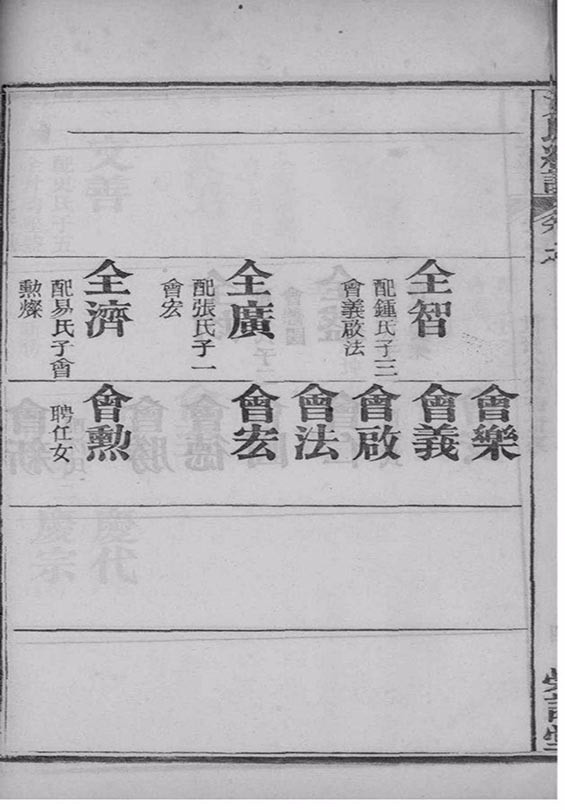 全智
配鍾氏子三
會義啟法
全廣
配張氏子一
會宏
全濟
配易氏子會
勳燦
會樂
會義
會啟
會法
會宏
會勳
聘任女